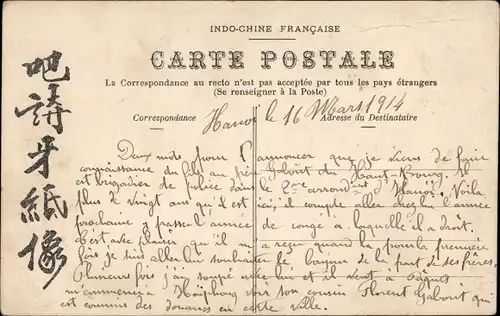 INDO-CHINE FRANÇAISE
CARTE POSTALE
La Correspondance au recto n'est pas acceptée par tous les pays étrangers
(Se renseigner à la Poste)
Correspondance
Adresse du Destinataire
Hanoï le 16 Mars 1914
Deux mots pour t'annoncer que je viens de faire
connaissance du fils au père Gabout du Haut-Kroug. Il
est brigadier de police dans le 2ème arrondt d'Hanoï. Voila
plus de vingt ans qu'il est ici, il compte aller chez lui l'année
prochaine passer l'année de congé à laquelle il a droit.
C'est avec plaisir qu'il m'a reçu quand la première
fois je suis aller lui souhaiter le bonjour de la part de ses frères.
Plusieurs fois j'ai soupé avec lui et il veut à Pâques
m'emmener à Haïphong voir son cousin Florent Gabout qui
est commis des douanes en cette ville.
吧
請
牙
紙
像